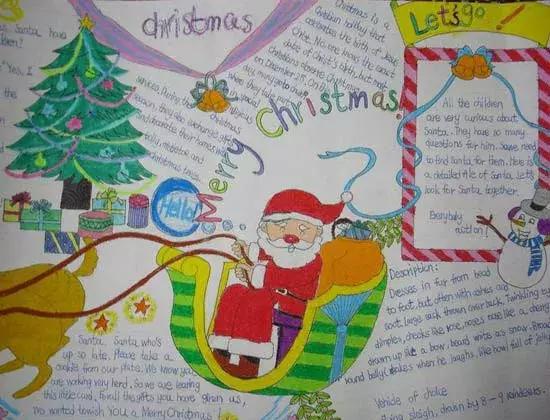 christmas
Let's go
as Santa have
dren?
"Yes, I
the
Christmas is a
Christian holiday that
celebrates the birth of Jesus
Christ. No one knows the exact
date of Christ's birth, but most
Christians observe Christmas
on December 25. On this
many people go to
when they take part in
special religious
services. During the Christmas
season, they also exchange gifts
and decorate their homes with
holly, mistletoe and
christmas trees.
Merry Christmas!
Hello!
All the children
are very curious about
Santa. They have so many
questions for him. So, we need
to find Santa for them. Here is
a detailed file of Santa. Let's
look for Santa together.
Everybody
action!
Description:
Dresses in fur from head
to foot, but often with ashes and
soot, large sack thrown over back. Twinkling
dimples, cheeks like rose, noses rose like a cherry
drawn up like a bow, beard white as snow. Broad
round belly shakes when he laughs, like bowl full of jelly
Vehicle of choice
sleigh, drawn by 8-9 reindeers.
Santa, Santa who's
up so late. Please take a
cookie from our plate. We know you
are working very hard, So we are leaving
this little card. For all the gifts you have given us,
we wanted to wish YOU a Merry Christmas!